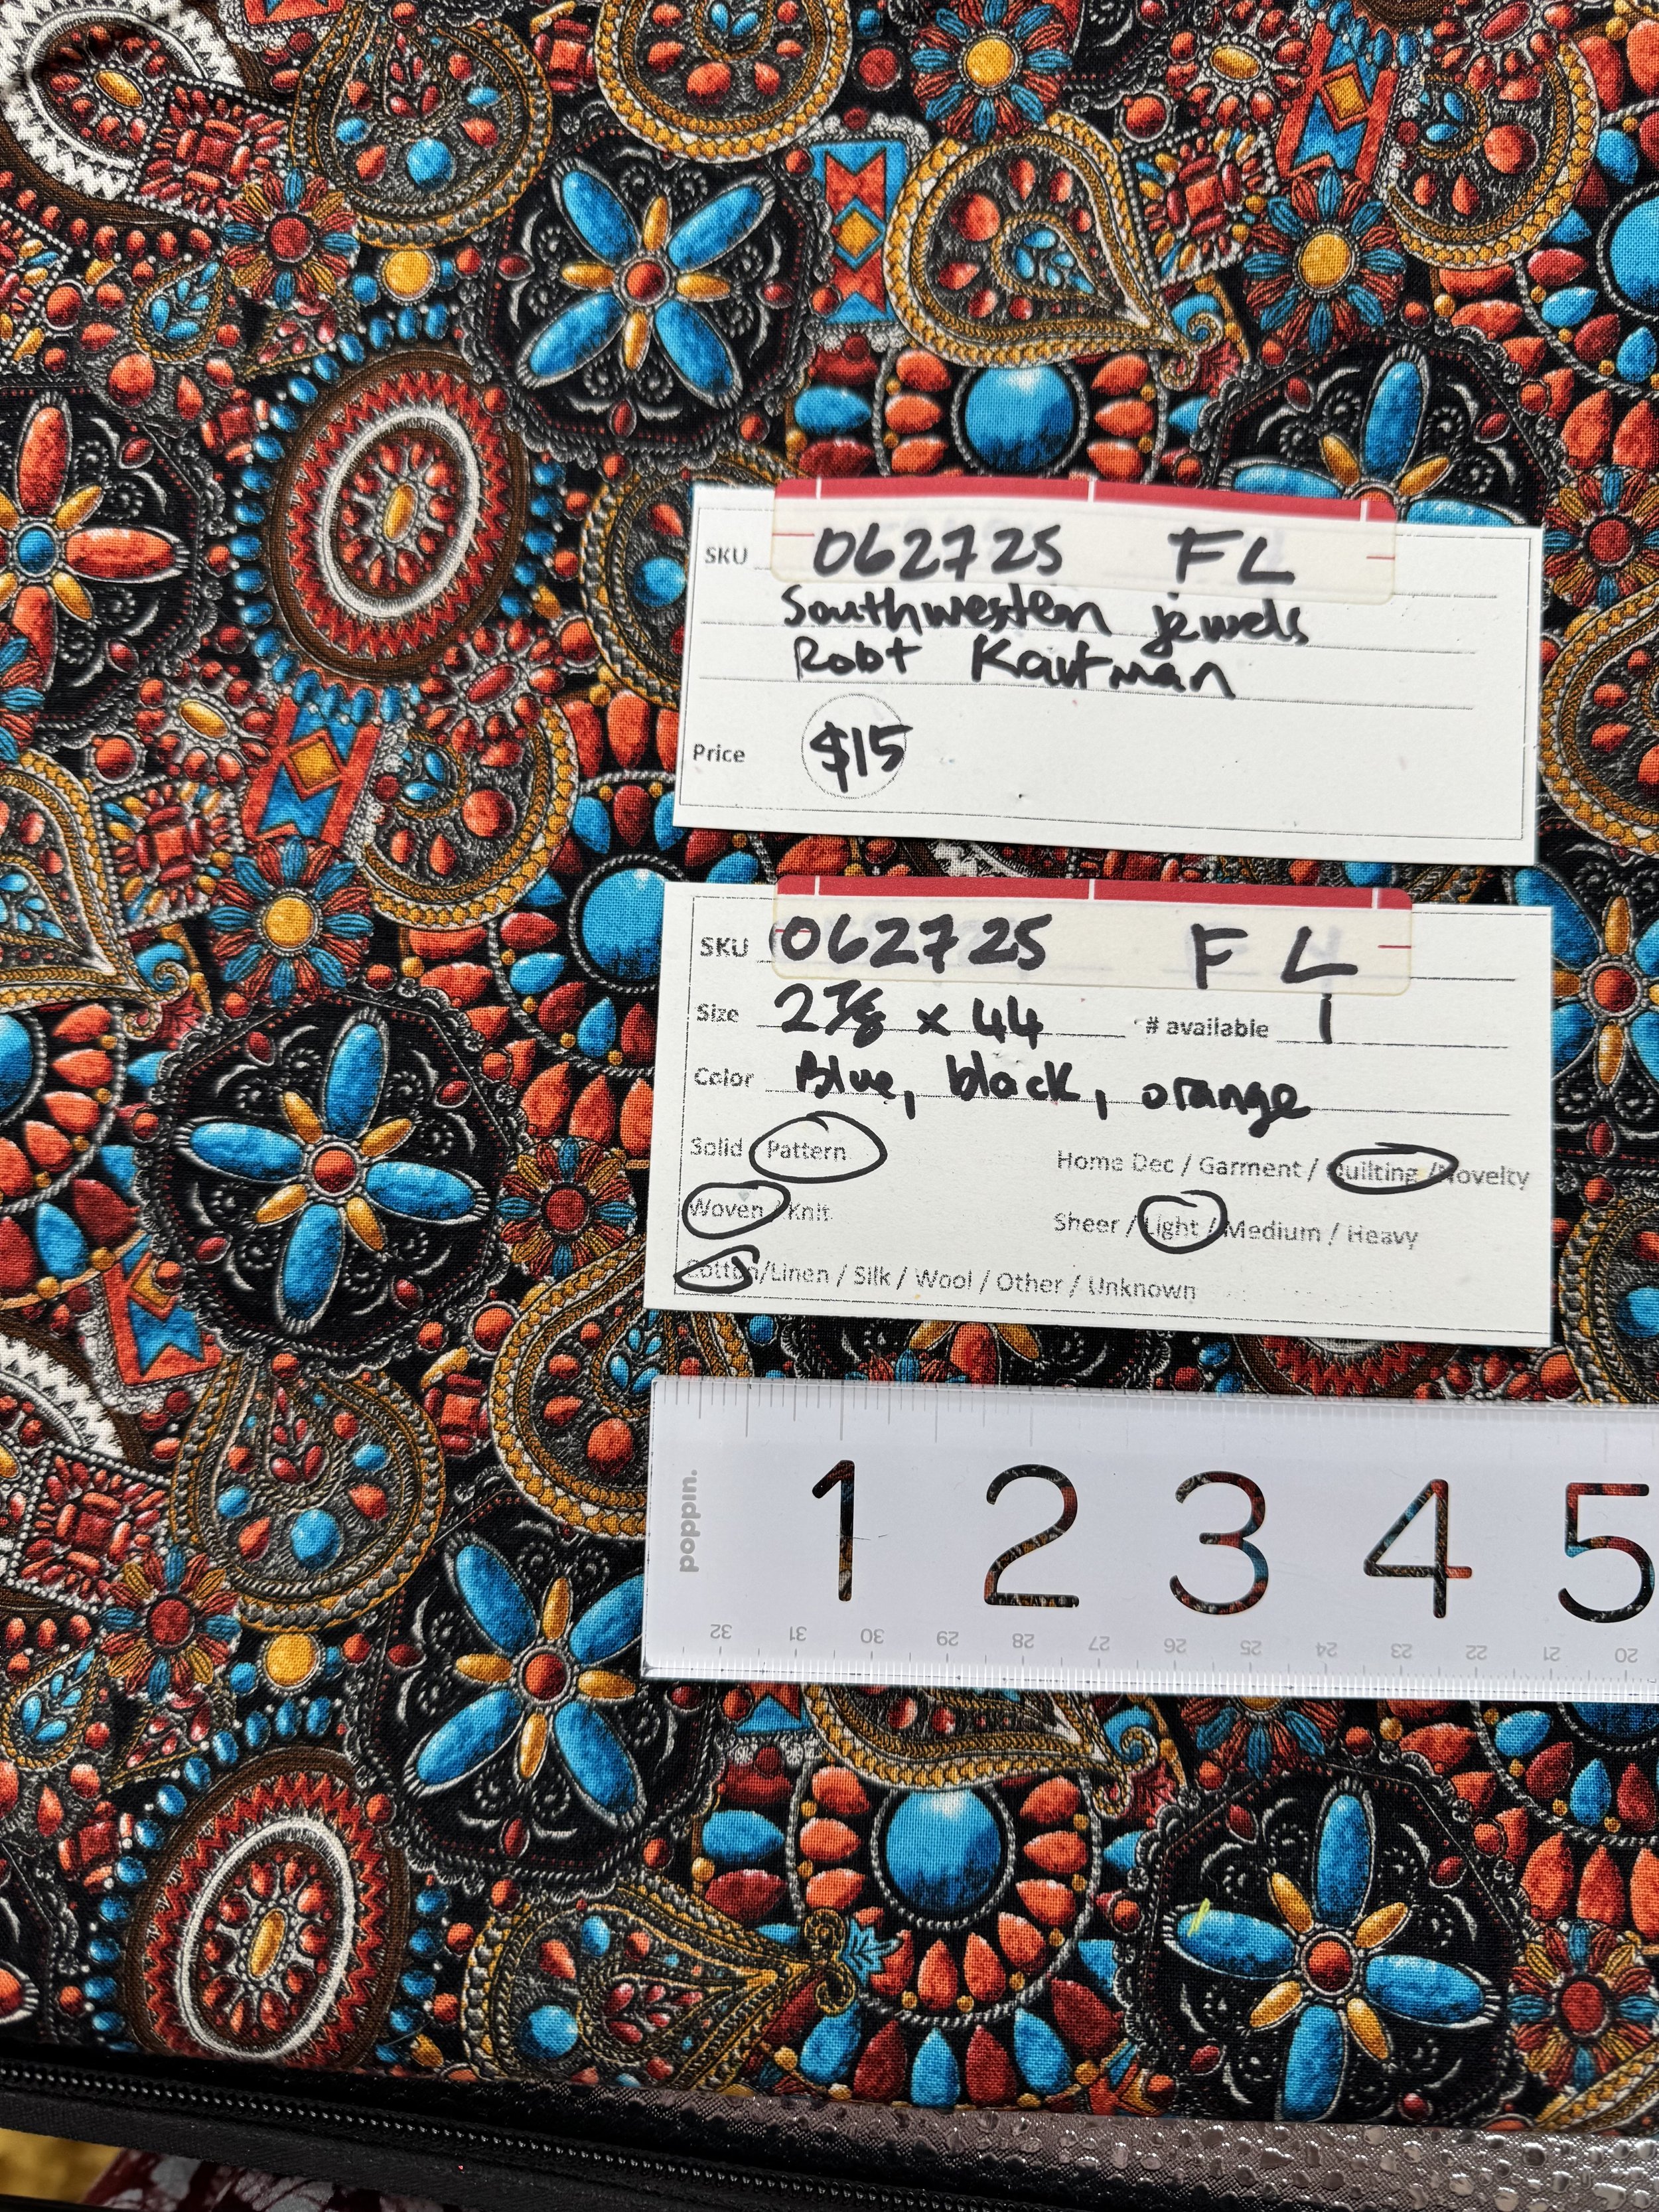 SKU 062725 FL
Southwestern jewels
Robt Kaufman
Price $15
SKU 062725 FL
Size 2 7/8 x 44 # available 1
Color Blue, black, orange
Solid Pattern Home Dec / Garment / Quilting / Novelty
Woven / Knit Sheer / Light / Medium / Heavy
Cotton/Linen / Silk / Wool / Other / Unknown
poppin.
1 2 3 4 5
32 31 30 29 28 27 26 25 24 23 22 21 20